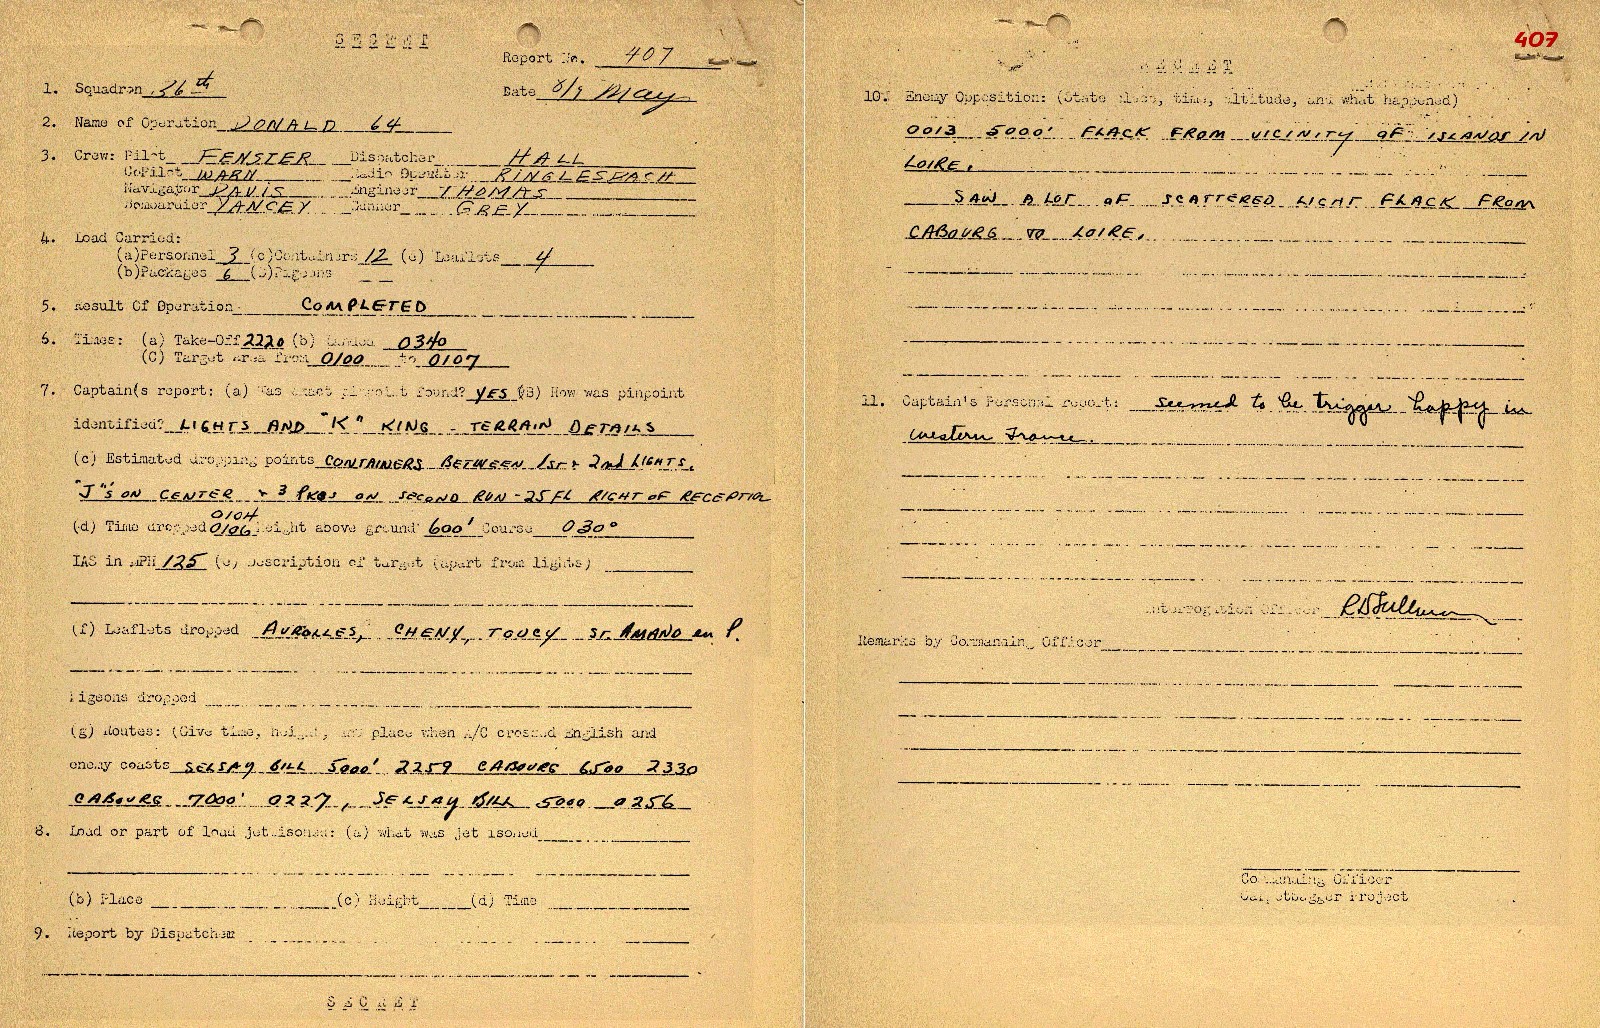 SECRET
Report No. 407
1. Squadron 36th Date 8/9 May
2. Name of Operation DONALD 64
3. Crew: Pilot FENSTER Dispatcher HALL
CoPilot WARN Radio Operator RINGLESBACH
Navigator DAVIS Engineer THOMAS
Bombardier YANCEY Gunner GREY
4. Load Carried:
(a)Personnel 3 (c)Containers 12 (e) Leaflets 4
(b)Packages 6 (D)Pigeons
5. Result Of Operation COMPLETED
6. Times: (a) Take-Off 2220 (b) Landed 0340
(C) Target area from 0100 to 0107
7. Captain(s report: (a) Was exact pinpoint found? YES (B) How was pinpoint
identified? LIGHTS AND "K" KING - TERRAIN DETAILS
(c) Estimated dropping points CONTAINERS BETWEEN 1ST + 2nd LIGHTS.
"J"'S ON CENTER + 3 PKGS ON SECOND RUN - 25 FL RIGHT OF RECEPTION
0104
(d) Time dropped 0106 height above ground 600' Course 030°
IAS in MPH 125 (e) Description of target (apart from lights)
(f) Leaflets dropped AVROLLES, CHENY, TOUCY ST AMAND en P.
Pigeons dropped
(g) Routes: (Give time, height, and place when A/C crossed English and
enemy coasts SELSAY BILL 5000' 2259 CABOURG 6500 2330
CABOURG 7000' 0227, SELSAY BILL 5000 0256
8. Load or part of load jettisoned: (a) what was jet isoned
(b) Place (c) Height (d) Time
9. Report by Dispatcher
SECRET
407
SECRET
10. Enemy Opposition: (State place, time, altitude, and what happened)
0013 5000' FLACK FROM VICINITY OF ISLANDS IN
LOIRE.
SAW A LOT OF SCATTERED LIGHT FLACK FROM
CABOURG TO LOIRE.
11. Captain's Personal report: seemed to be trigger happy in
western France.
Interrogation Officer
Remarks by Commanding Officer
Commanding Officer
Carpetbagger Project